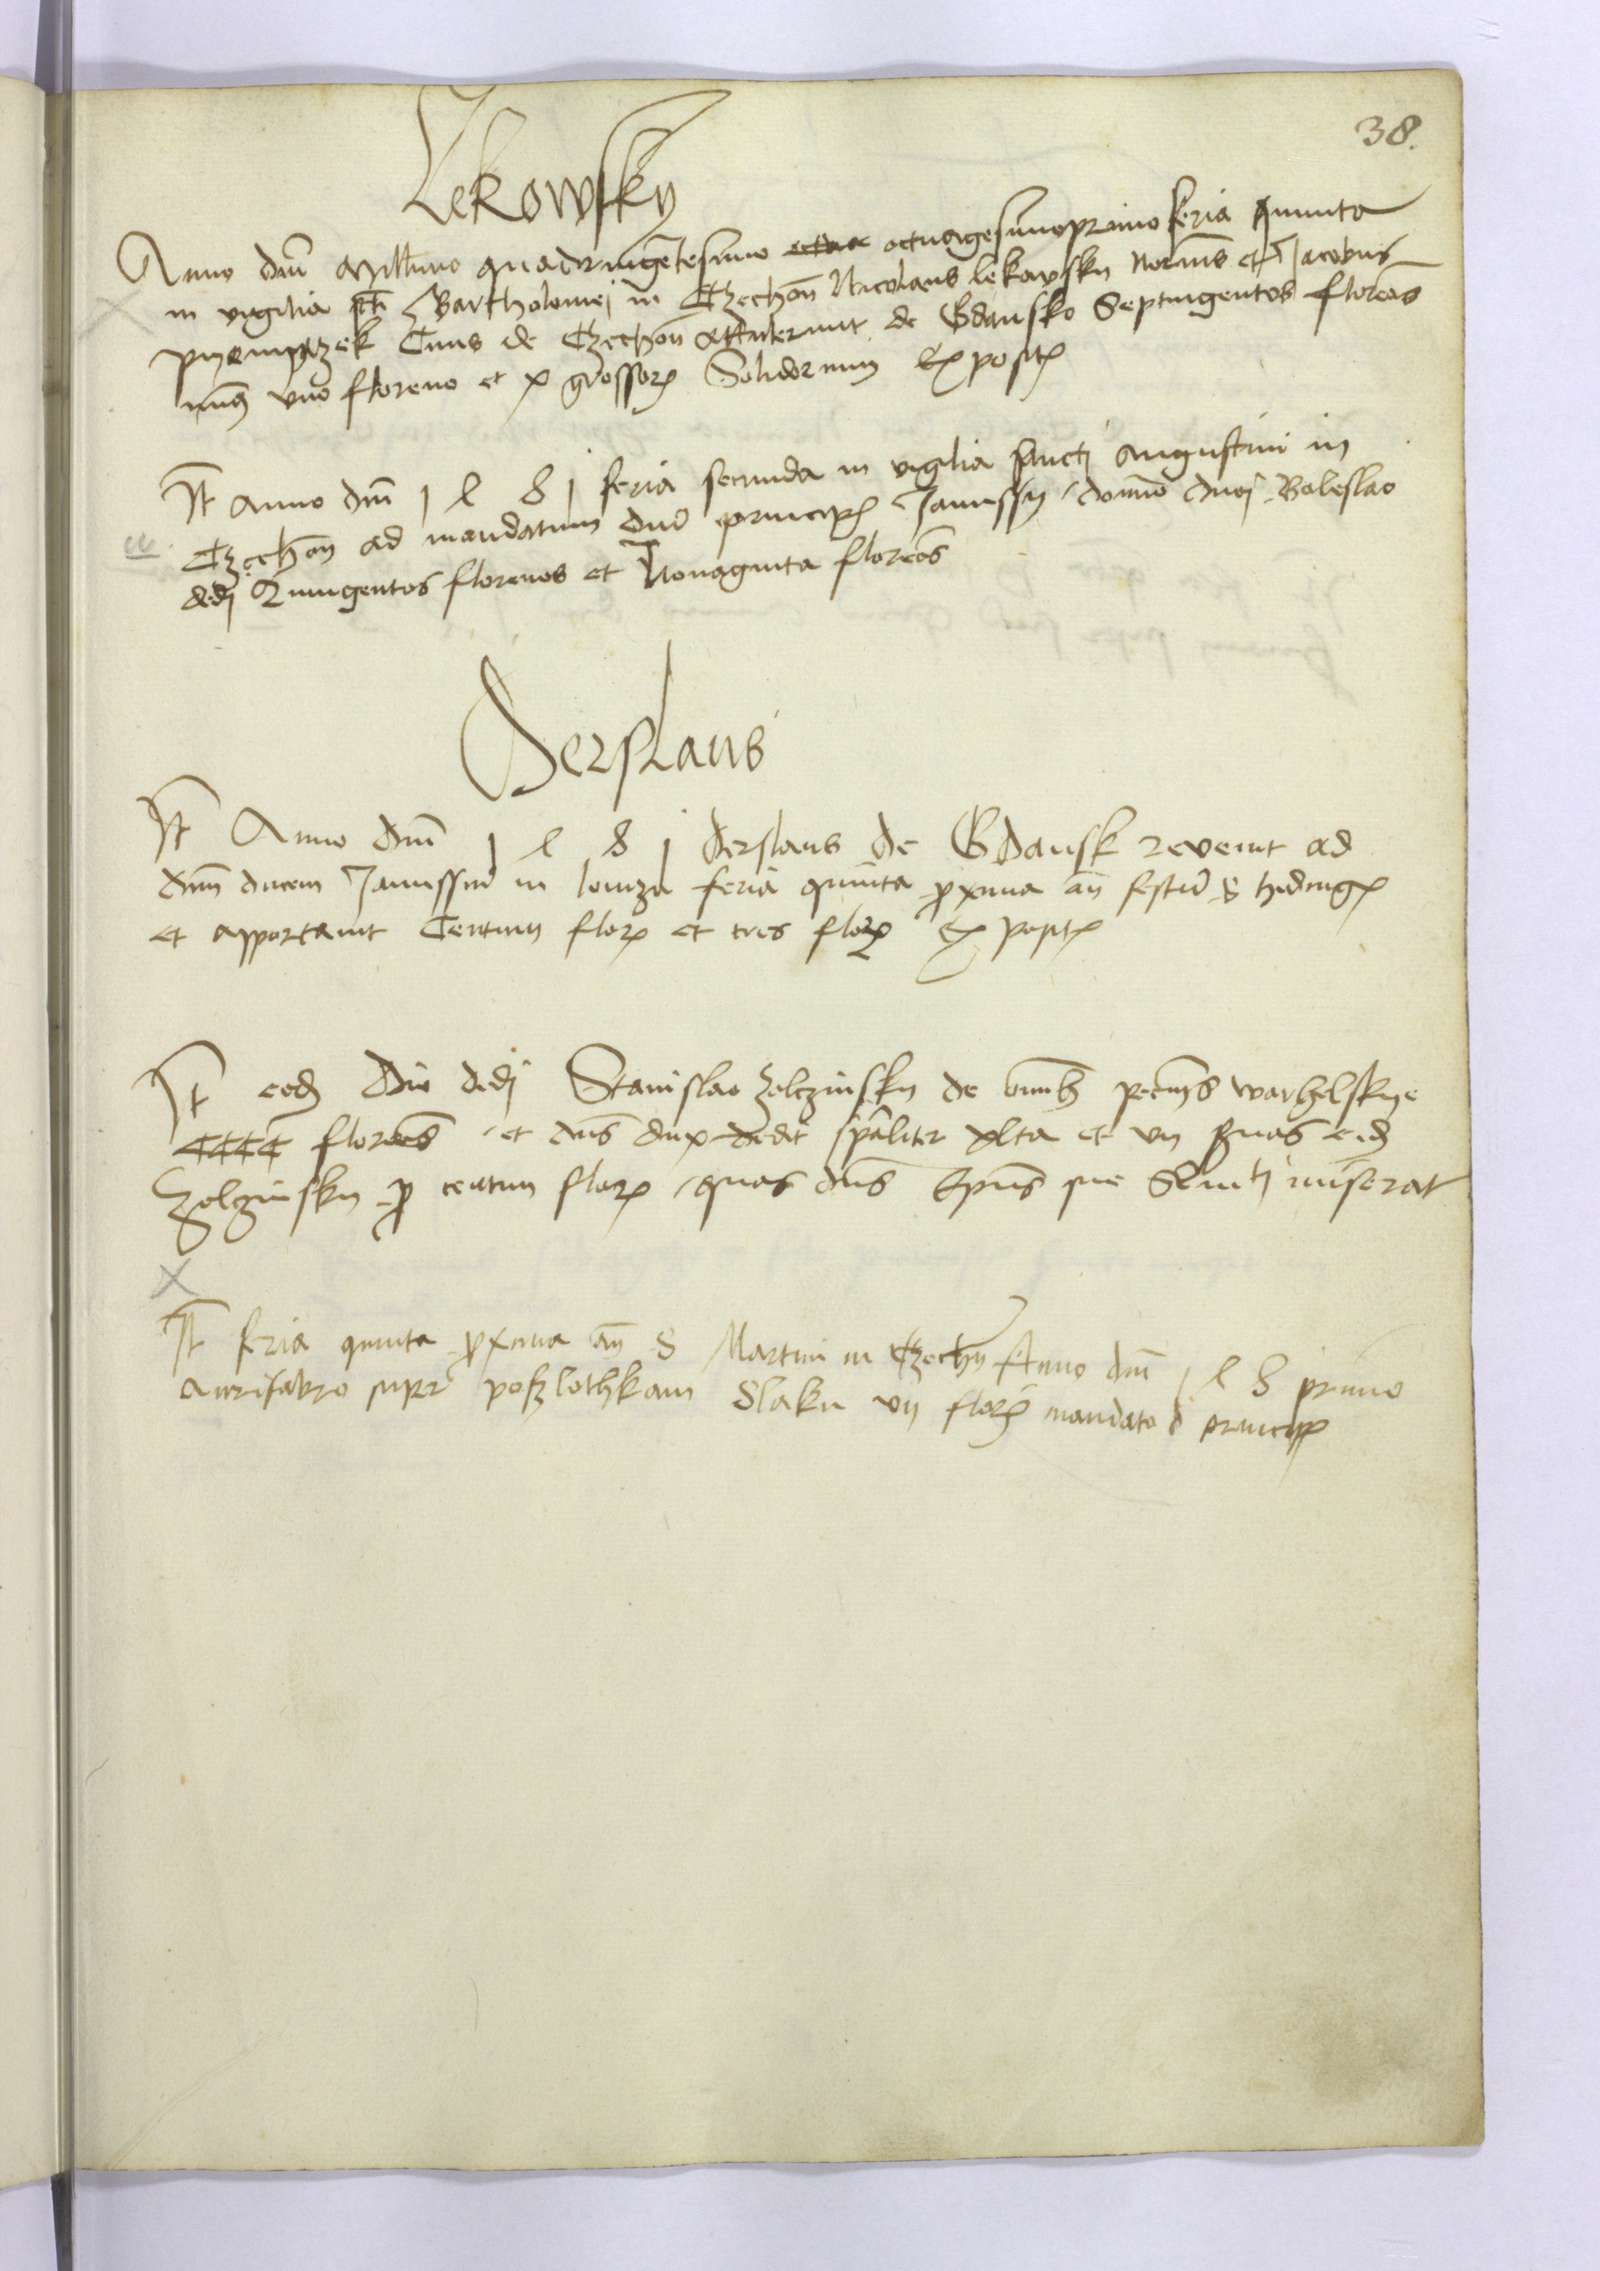 38.
Lekowsky
Anno dni Millimo quadringetesimo octuagesimoprimo feria quinta
in vigilia scti Bartholomei in Czechon Nicolaus lekowsky notarius et Jacobus
pyenyąszek Civis de Czechon attulerunt de Gdansko Septingentos florenos
minus vno floreno et x grossor Solidorum Expositis
It Anno dni 1 4 8 1 feria secunda in vigilia sancti Augustini in
Czechon ad mandatum dni principis Janussij domino duci Boleslao
dedi Quingentos florenos et Nonaginta florenos
Derslaus
It Anno dni 1 4 8 1 derslaus de Gdansk revenit ad
dnm ducem Janussiu in lomza feria quinta proxima an festu S hedwigis
et apportavit Centum flor et tres flor Expositis
It eod die dedi Stanislao zolczinsky de omnibus pecunys
CCCC florenos et dns dux dedit spaliter xlta et vii quas eid
Zolczinsky pro centum flor quas dns Epus sue miserat
It feria quinta proxima an S Martini in Czechn Anno dni 1 4 8 primo
Aurifabro super poszlothkam Slaku vii flor mandato d principis